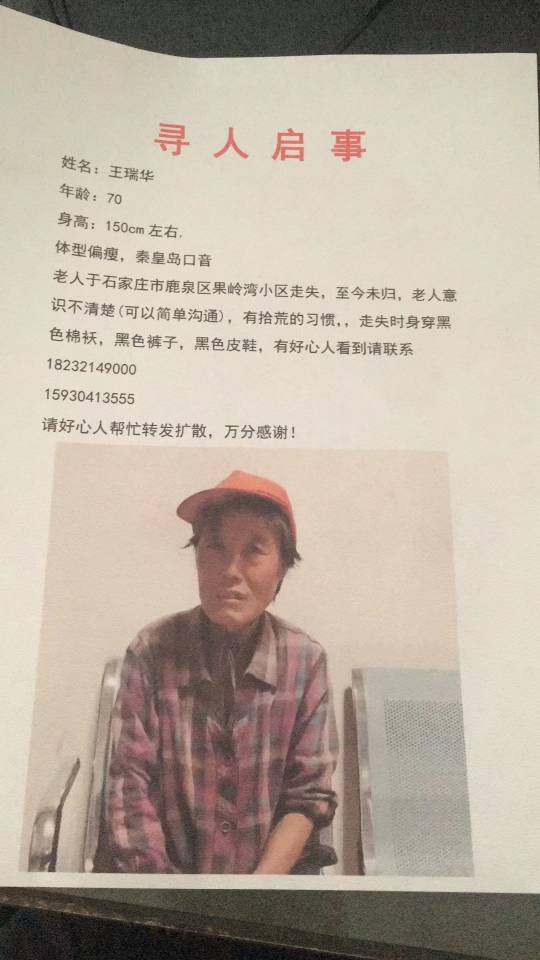 寻人启事
姓名：王瑞华
年龄：70
身高：150cm左右.
体型偏瘦，秦皇岛口音
老人于石家庄市鹿泉区果岭湾小区走失，至今未归，老人意
识不清楚(可以简单沟通)，有拾荒的习惯，，走失时身穿黑
色棉袄，黑色裤子，黑色皮鞋，有好心人看到请联系
18232149000
15930413555
请好心人帮忙转发扩散，万分感谢！